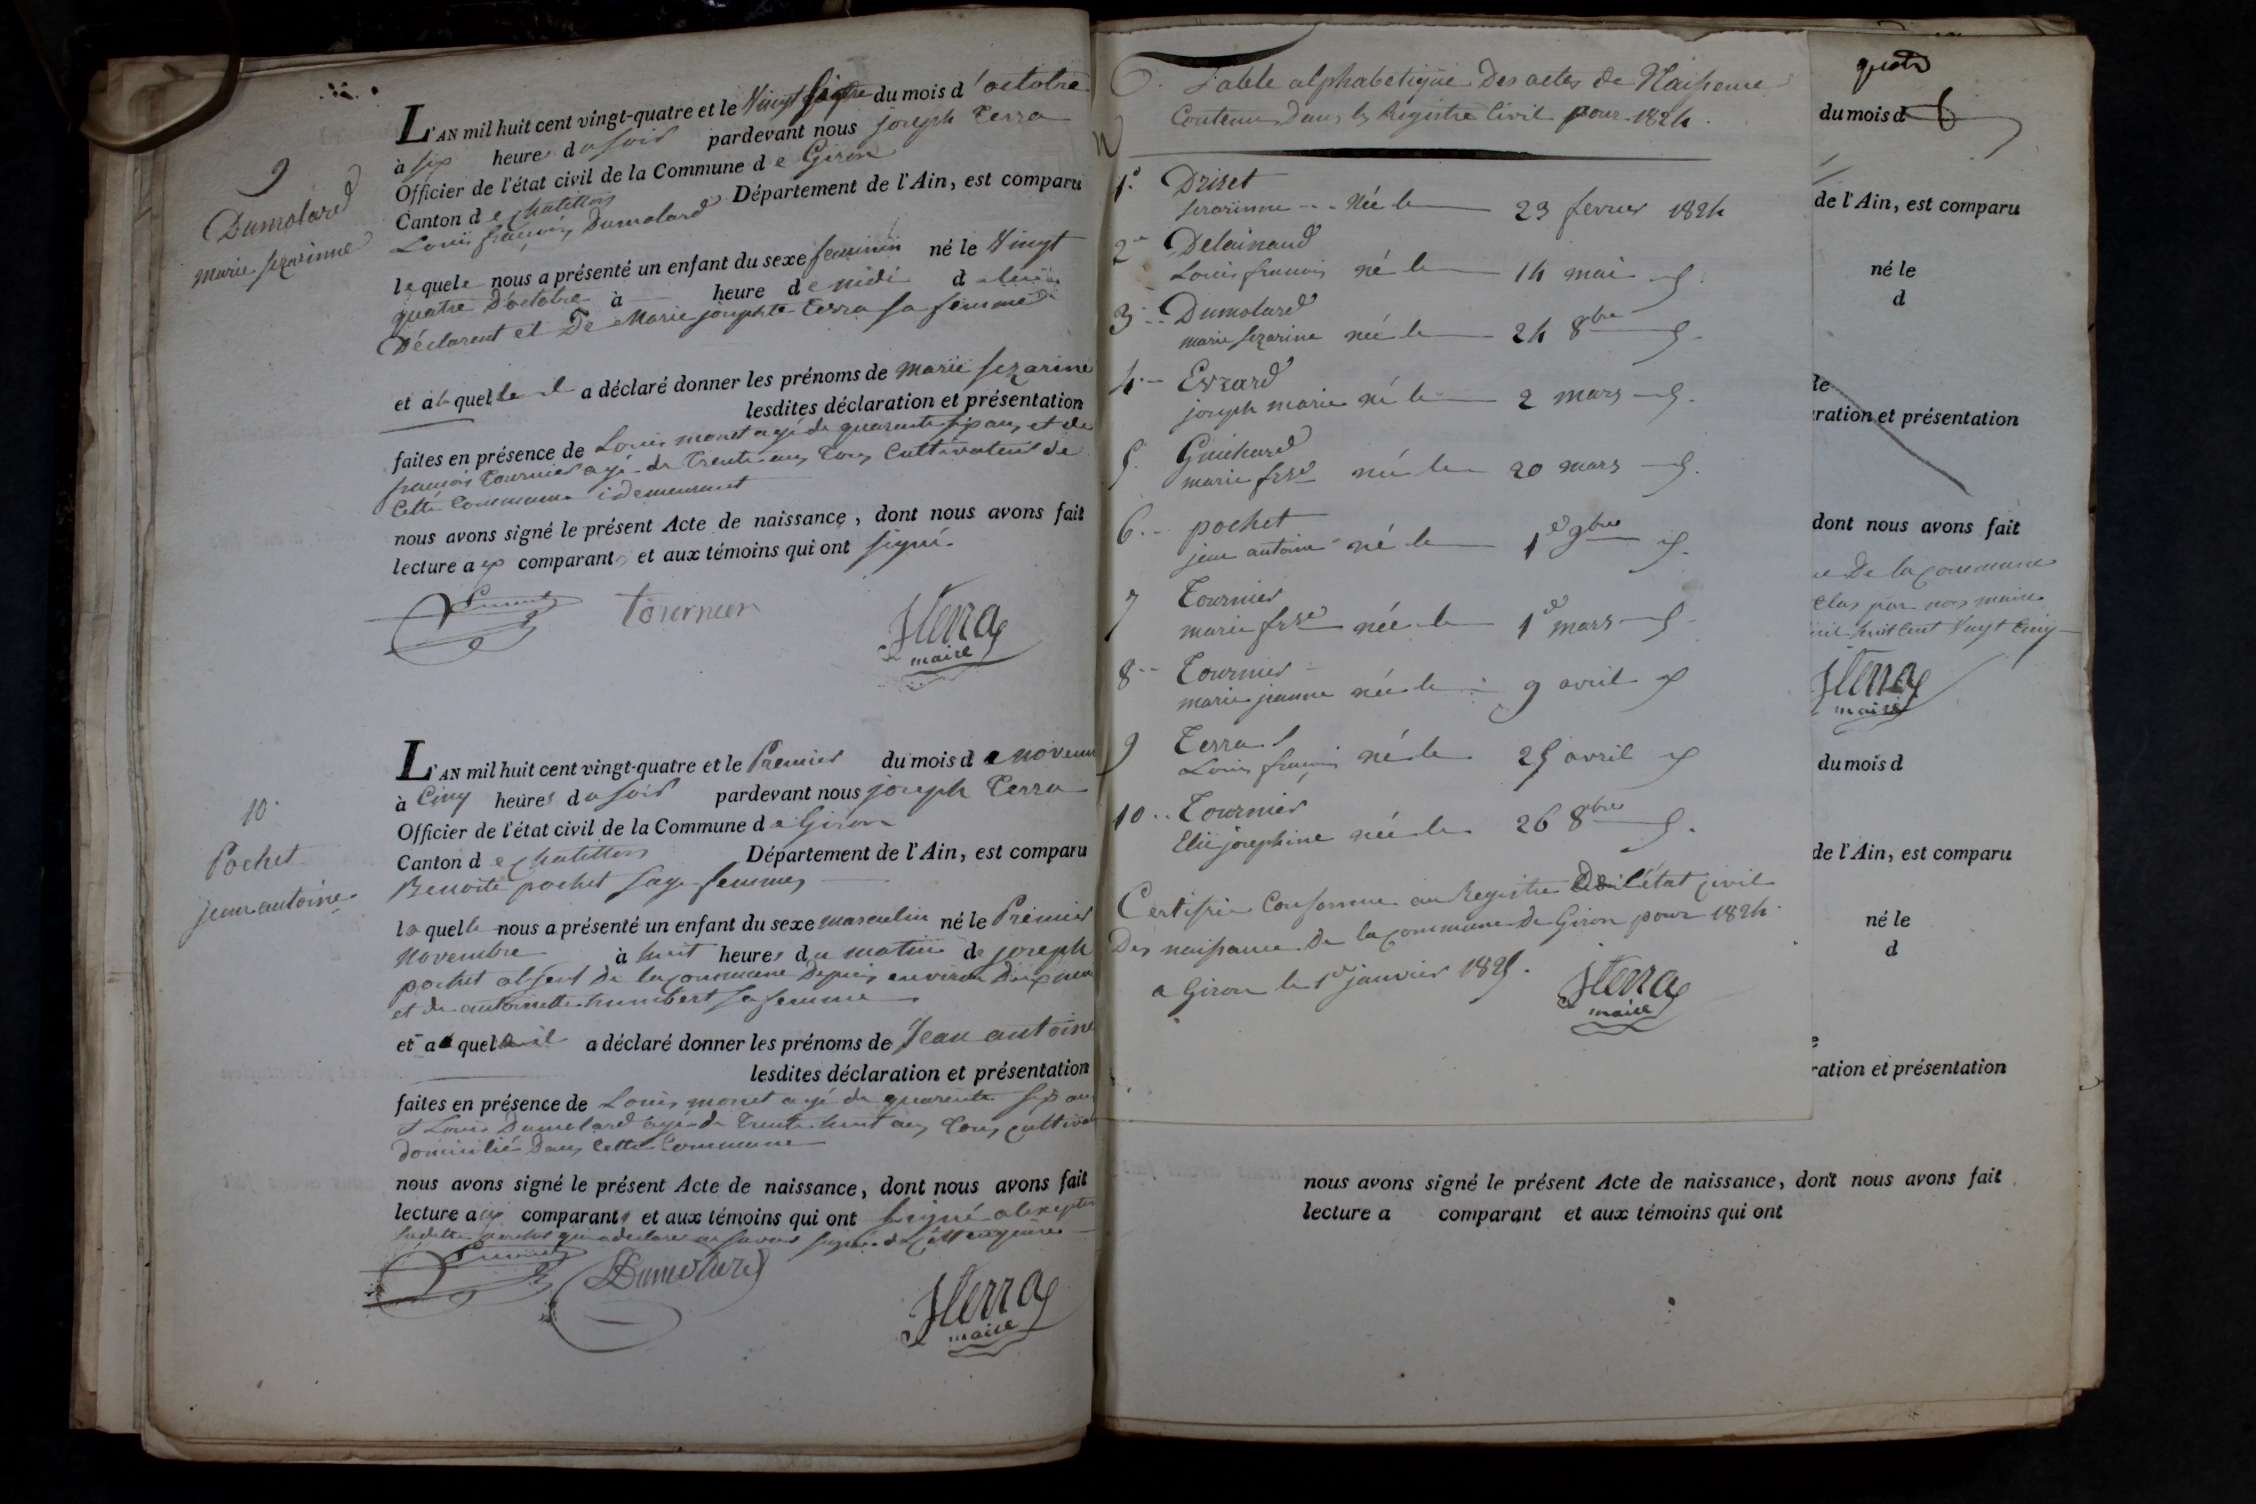 9
Dumolard
marie sezarinne
L'AN mil huit cent vingt-quatre et le Vingt du mois d'octobre
à six heures du soir pardevant nous joseph Terra
Officier de l'état civil de la Commune de Giron
Canton de chatillon Département de l'Ain, est comparu
Louis françois Dumolard
lequel nous a présenté un enfant du sexe feminin né le Vingt
quatre D'octobre à heure de midi de lui
Déclarent et De Marie josephte Terra sa femme
et a la quelle il a déclaré donner les prénoms de Marie sezarine
lesdites déclaration et présentation
faites en présence de Louis monet agé de quarente six ans et de
francois Tournier agé de Trente ans Tous Cultivateurs de
Cette Commune i demeurant
nous avons signé le présent Acte de naissance, dont nous avons fait
lecture aux comparants et aux témoins qui ont signé.
tournier
Jterra
maire
10
Pochet
jean antoine
L'AN mil huit cent vingt-quatre et le Premier du mois de novem
à Cinq heures du soir pardevant nous joseph Terra
Officier de l'état civil de la Commune de Giron
Canton de chatillon Département de l'Ain, est comparu
Benoite pochet sage femme
laquelle nous a présenté un enfant du sexe masculin né le Premier
Novembre à huit heures du matin de joseph
pochet absent De la commune Depuis environ Dix
et de antoinette humbert sa femme
et a quel il a déclaré donner les prénoms de Jean antoine
lesdites déclaration et présentation
faites en présence de Louis monet agé de quarente six ans
et Louis Dumolard agé de Trente huit ans Tous cultiva
domicilié Dans Cette Commune
nous avons signé le présent Acte de naissance, dont nous avons fait
lecture aux comparants et aux témoins qui ont signé a lexepter
ladite pochet qui a declaré ne savoir signé de
Dumolard
Jterra
maire
Table alphabetique Des actes de Naissance
Contenu Dans le Régistre Civil pour 1824.
1. Driset
sezarinne née le 23 fevrier 1824
2 Delainaud
Louis francois né le 14 mai
3 Dumolard
marie sezarine née le 24 8bre
4 Evrard
joseph marie né le 2 mars
5. Guichard
marie frse née le 20 mars
6 pochet
jean antoine né le 1er 9bre
7 Tournier
marie frse née le 1er mars
8 Tournier
marie jeanne née le 9 avril
9 Terra
Louis françois né le 25 avril
10 Tournier
Elie josephine née le 26 8bre
Certifié Conforme au Registre De l'état civil
Des naissance De la commune De Giron pour 1824.
a Giron le 1er janvier 1825.
Jterra
maire
du mois d
de l'Ain, est comparu
né le
d
le
ration et présentation
dont nous avons fait
De la commune
clos par nos maire
mil huit Cent Vingt Cinq
Jterra
maire
du mois d
de l'Ain, est comparu
né le
d
ration et présentation
nous avons signé le présent Acte de naissance, dont nous avons fait
lecture a comparant et aux témoins qui ont